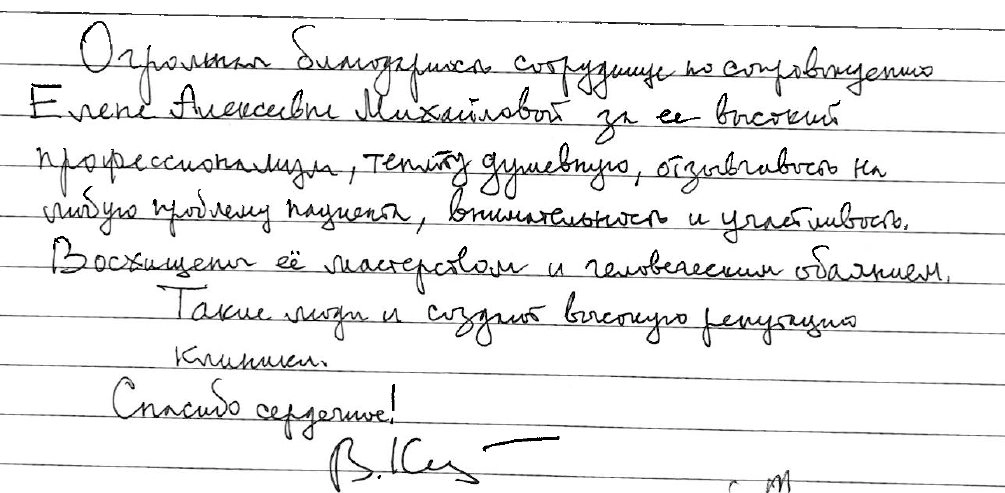 Огромная благодарность сотруднице по сопровождению
Елене Алексеевне Михайловой за ее высокий
профессионализм, теплоту душевную, отзывчивость на
любую проблему пациента, внимательность и участливость.
Восхищены её мастерством и человеческим обаянием.
Такие люди и создают высокую репутацию
клиники.
Спасибо сердечное!
В.